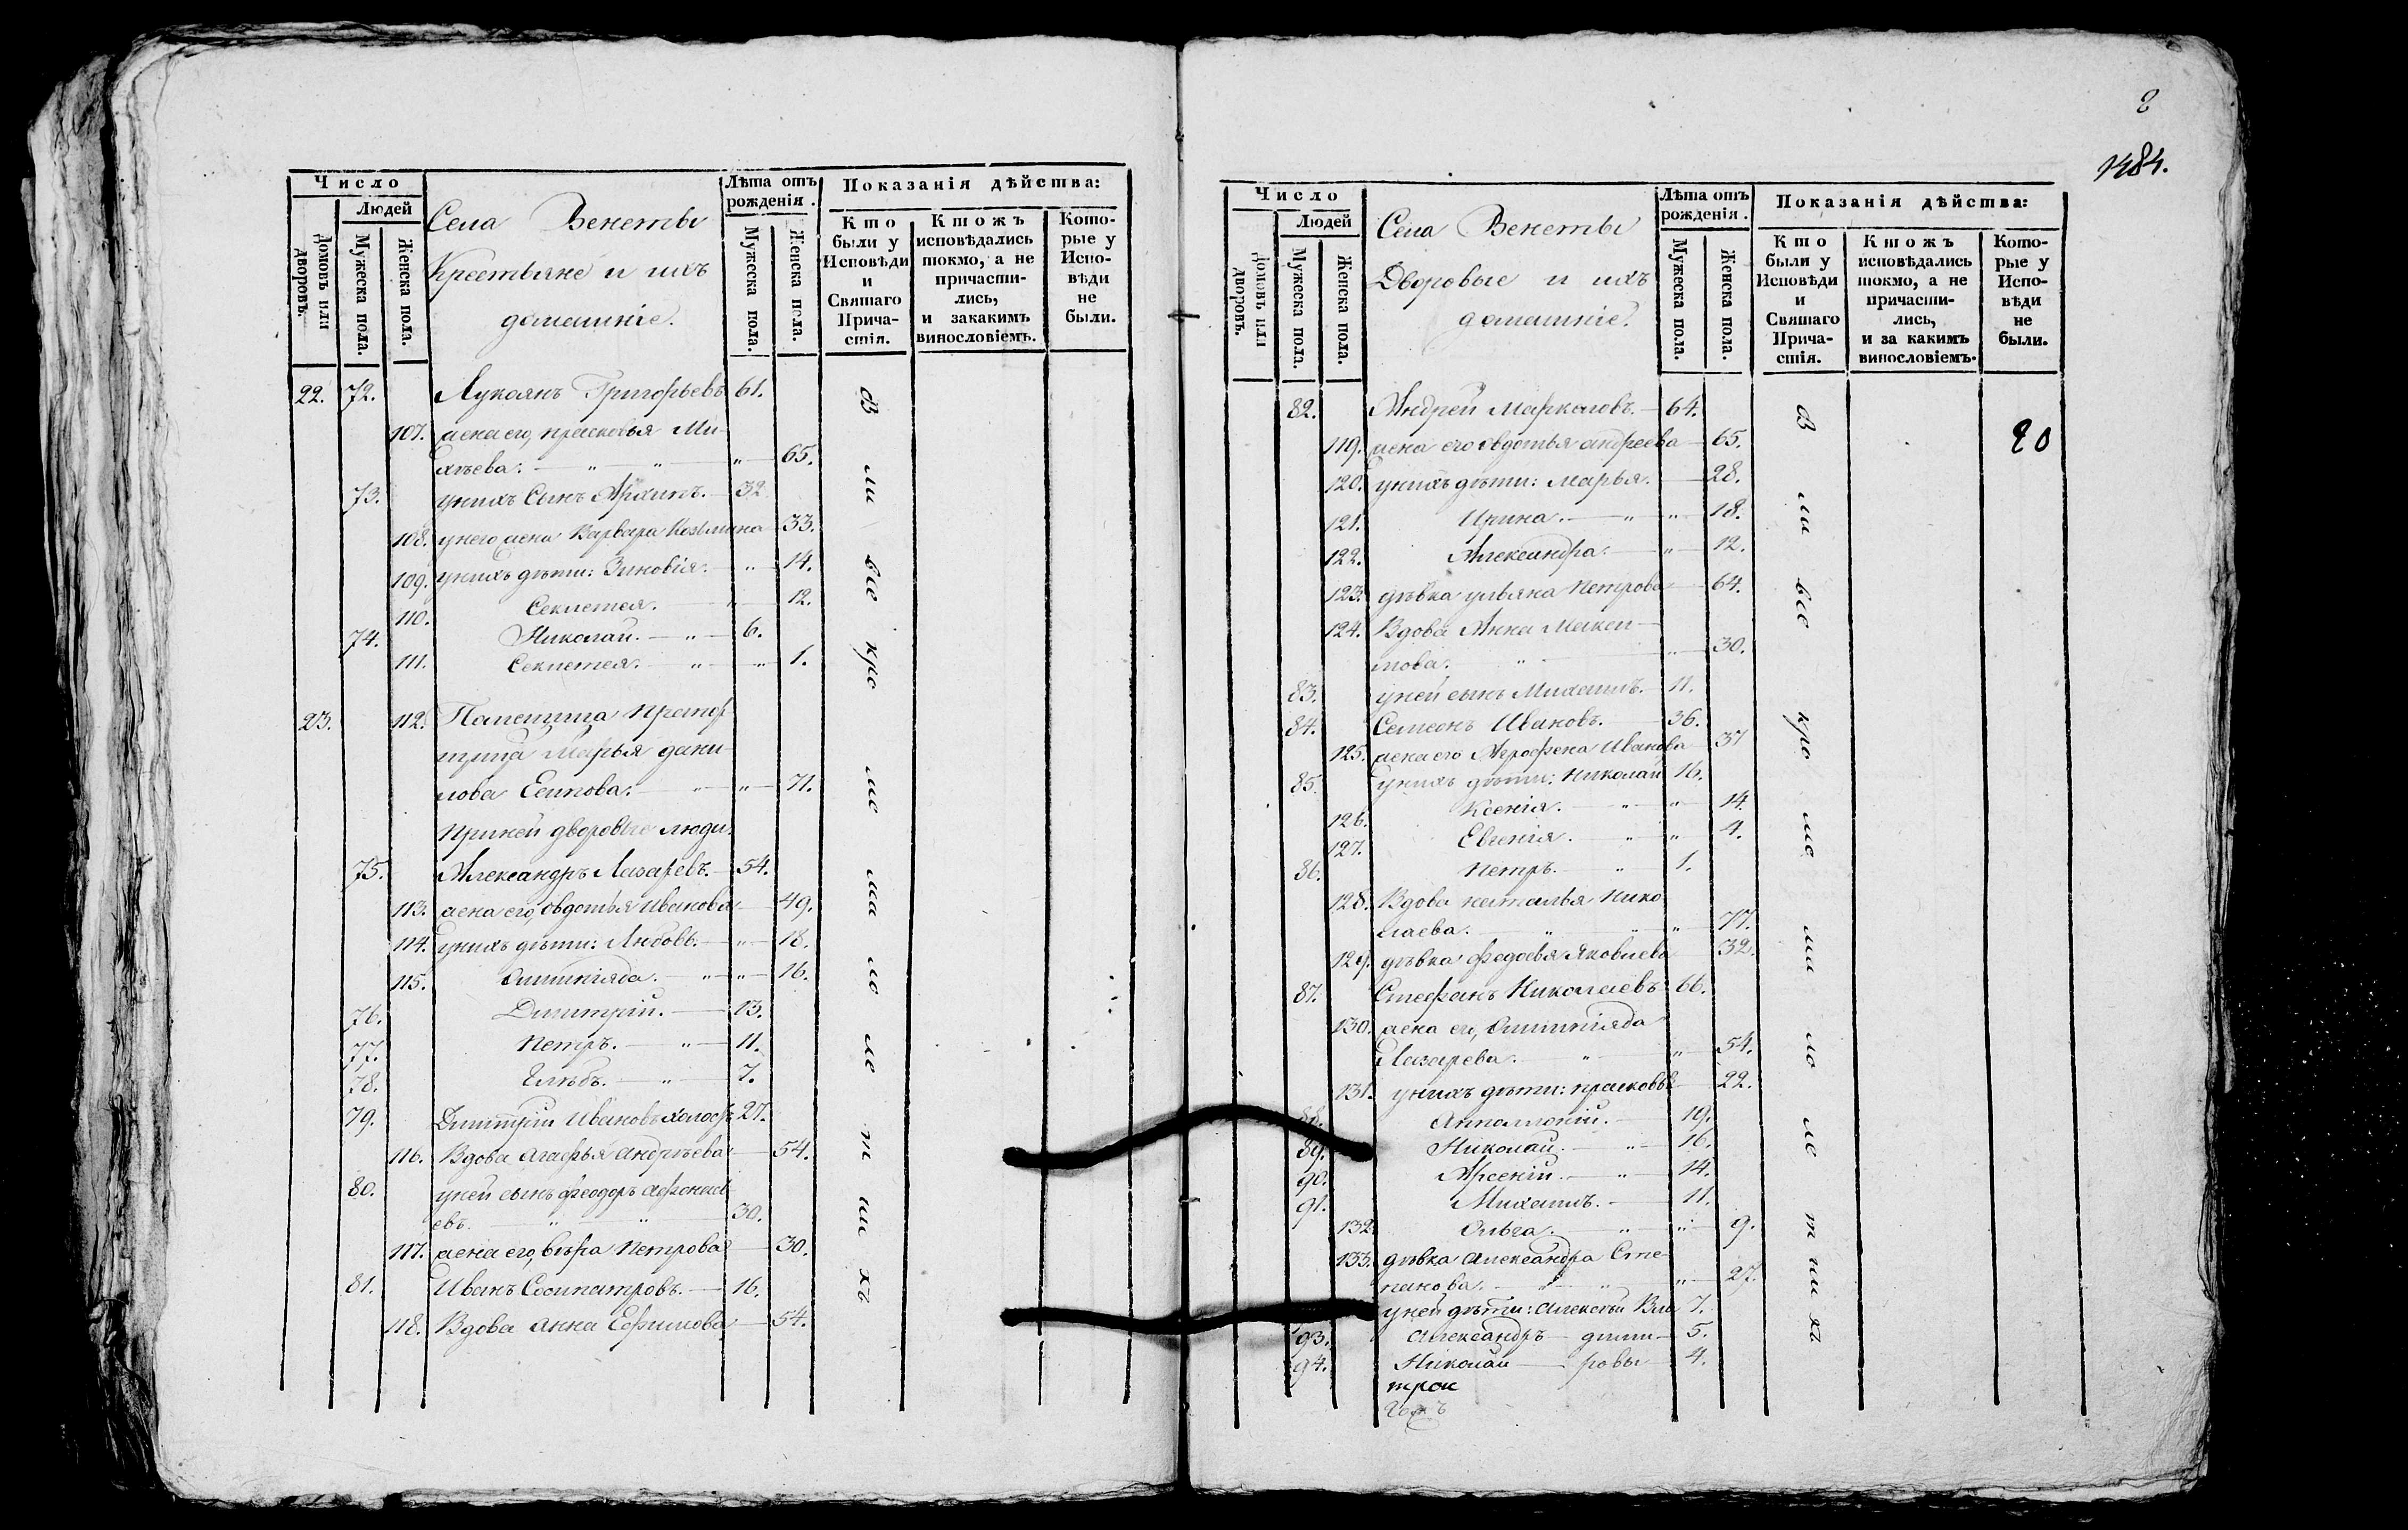 Число
Людей
Домовъ или дворовъ.
Мужеска пола.
Женска пола.
Села Векеты
Крестьяне и ихъ
домашніе.
Лѣта отъ рожденія.
Мужеска пола.
Женска пола.
Показанія дѣйства:
Кто были у Исповѣди и Святаго Причастія.
Ктожъ исповѣдались токмо, а не причастились, и закакимъ винословіемъ.
Которые у Исповѣди не были.
22. 72. Лукоянъ Григорьевъ 61.
107. жена его, прасковья Ми-
хѣева. 65.
73. унихъ Сынъ Архипъ. 32.
108. унего жена Варвара Козьмина 33.
109. унихъ дѣти: Зиновія. 14.
110. Секлетея. 12.
74. Николай. 6.
111. Секлетея. 1.
23. 112. Помещица Прапор
щица Марья дани-
лова Есипова. 71.
Приней дворовые люди.
75. Александръ Лазаревъ. 54.
113. жена его, овдотья Иванова 49.
114. унихъ дѣти: Любовь. 18.
115. Олимпіяда. 16.
76. Димитрій. 13.
77. Петръ. 11.
78. Глѣбъ. 7.
79. Димитрій Ивановъ холостъ 27.
116. Вдова агафья андрѣева 54.
80. уней сынъ феодоръ афонась
евъ. 30.
117. жена его, вѣра Петрова 30.
81. Иванъ Сосипатровъ. 16.
118. Вдова анна Ефимова 54.
2
1484.
Число
Людей
Домовъ или дворовъ.
Мужеска пола.
Женска пола.
Села Векеты
Дворовые и ихъ
домашніе.
Лѣта отъ рожденія.
Мужеска пола.
Женска пола.
Показанія дѣйства:
Кто были у Исповѣди и Святаго Причастія.
Ктожъ исповѣдались токмо, а не причастились, и за какимъ винословіемъ.
Которые у Исповѣди не были.
82. Андрей Маркеловъ. 64.
119. жена его овдотья андреева 65.
20
120. унихъ дѣти: Марья. 28.
121. Ирина. 18.
122. Александра. 12.
123. дѣвка ульяна Петрова 64.
124. Вдова Анна Макси-
мова. 30.
83. уней сынъ Михаилъ. 11.
84. Семенъ Ивановъ. 36.
125. жена его Агрофена Иванова 37
85. унихъ дѣти: Николай 16.
126. Ксенія. 14.
127. Евгенія. 4.
86. Петръ. 1.
128. Вдова наталья Нико
лаева. 77.
129. дѣвка федосья Яковлева 32.
87. Стефанъ Николаевъ 66.
130. жена его, Олимпіяда
Лазарева. 54.
131. унихъ дѣти: прасковья 22.
88. Апполлоній. 19.
89. Николай. 16.
90. Арсеній. 14.
91. Михаилъ. 11.
132. Ольга. 9.
133. дѣвка александра Сте-
панова. 27.
уней дѣти: алексѣй 7.
93. александръ дмит- 5.
94. Николай ровы 4.